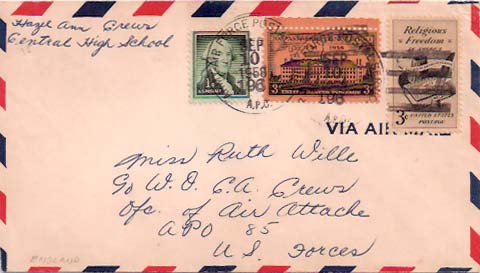 Hazel Ann Crews
Central High School
AIR FORCE POST
SEP
10
1958
296
A.P.O.
1956
3¢
Religious
Freedom
in America
3¢ UNITED STATES
POSTAGE
VIA AIR MAIL
Miss Ruth Wille
c/o W. O. C. A. Crews
Ofc. of Air Attache
APO 85
U. S. Forces
ENGLAND